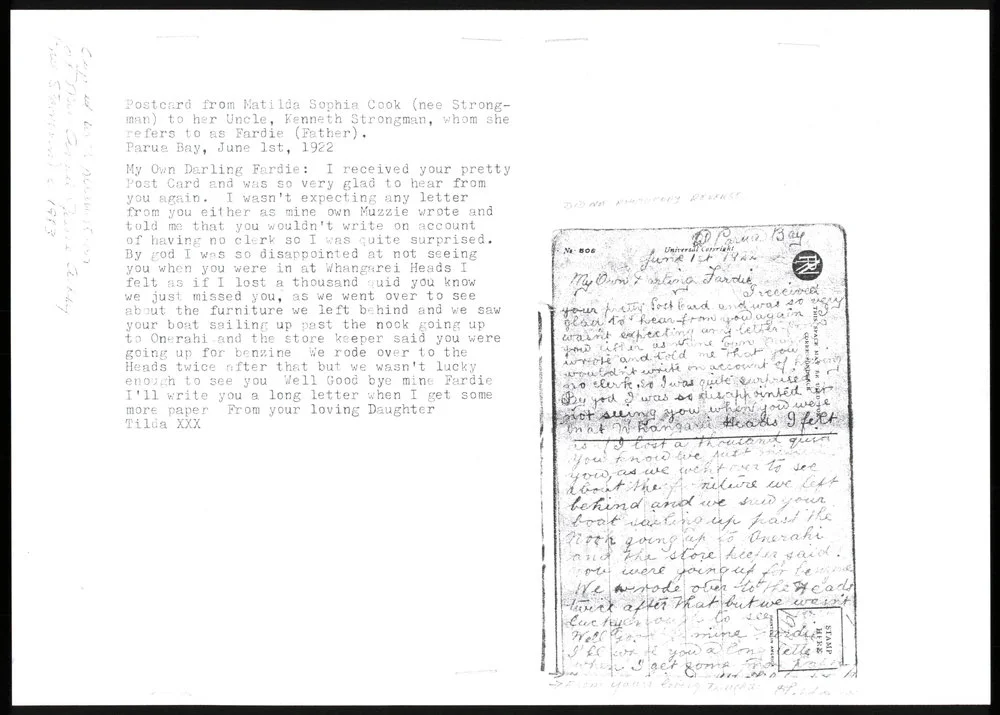 Postcard from Matilda Sophia Cook (nee Strong-
man) to her Uncle, Kenneth Strongman, whom she
refers to as Fardie (Father).
Parua Bay, June 1st, 1922
My Own Darling Fardie: I received your pretty
Post Card and was so very glad to hear from
you again. I wasn't expecting any letter
from you either as mine own Muzzie wrote and
told me that you wouldn't write on account
of having no clerk so I was quite surprised.
By god I was so disappointed at not seeing
you when you were in at Whangarei Heads I
felt as if I lost a thousand quid you know
we just missed you, as we went over to see
about the furniture we left behind and we saw
your boat sailing up past the nook going up
to Onerahi and the store keeper said you were
going up for benzine We rode over to the
Heads twice after that but we wasn't lucky
enough to see you Well Good bye mine Fardie
I'll write you a long letter when I get some
more paper From your loving Daughter
Tilda XXX
No 806
Universal Copyright
Parua Bay
June 1st 1922
My Own Darling Fardie
I received
your pretty Post Card and was so very
glad to hear from you again
wasn't expecting any letter from
you either as mine own
wrote and told me that you
wouldn't write on account of having
no clerk, so I was quite surprised
By god I was so disappointed at
not seeing you when you were
in at Whangarei Heads I felt
as if I lost a thousand quid
you know we just missed
you, as we went over to see
about the furniture we left
behind and we saw your
boat sailing up past the
Nook going up to Onerahi
and the store keeper said
you were going up for benzine
We rode over to the Heads
twice after that but we wasn't
lucky enough to see
Well mine Fardie
I'll write you a long letter
when I get some more paper
From your loving Daughter
THIS SPACE MAY BE USED
CORRESPONDENCE
STAMP
HERE